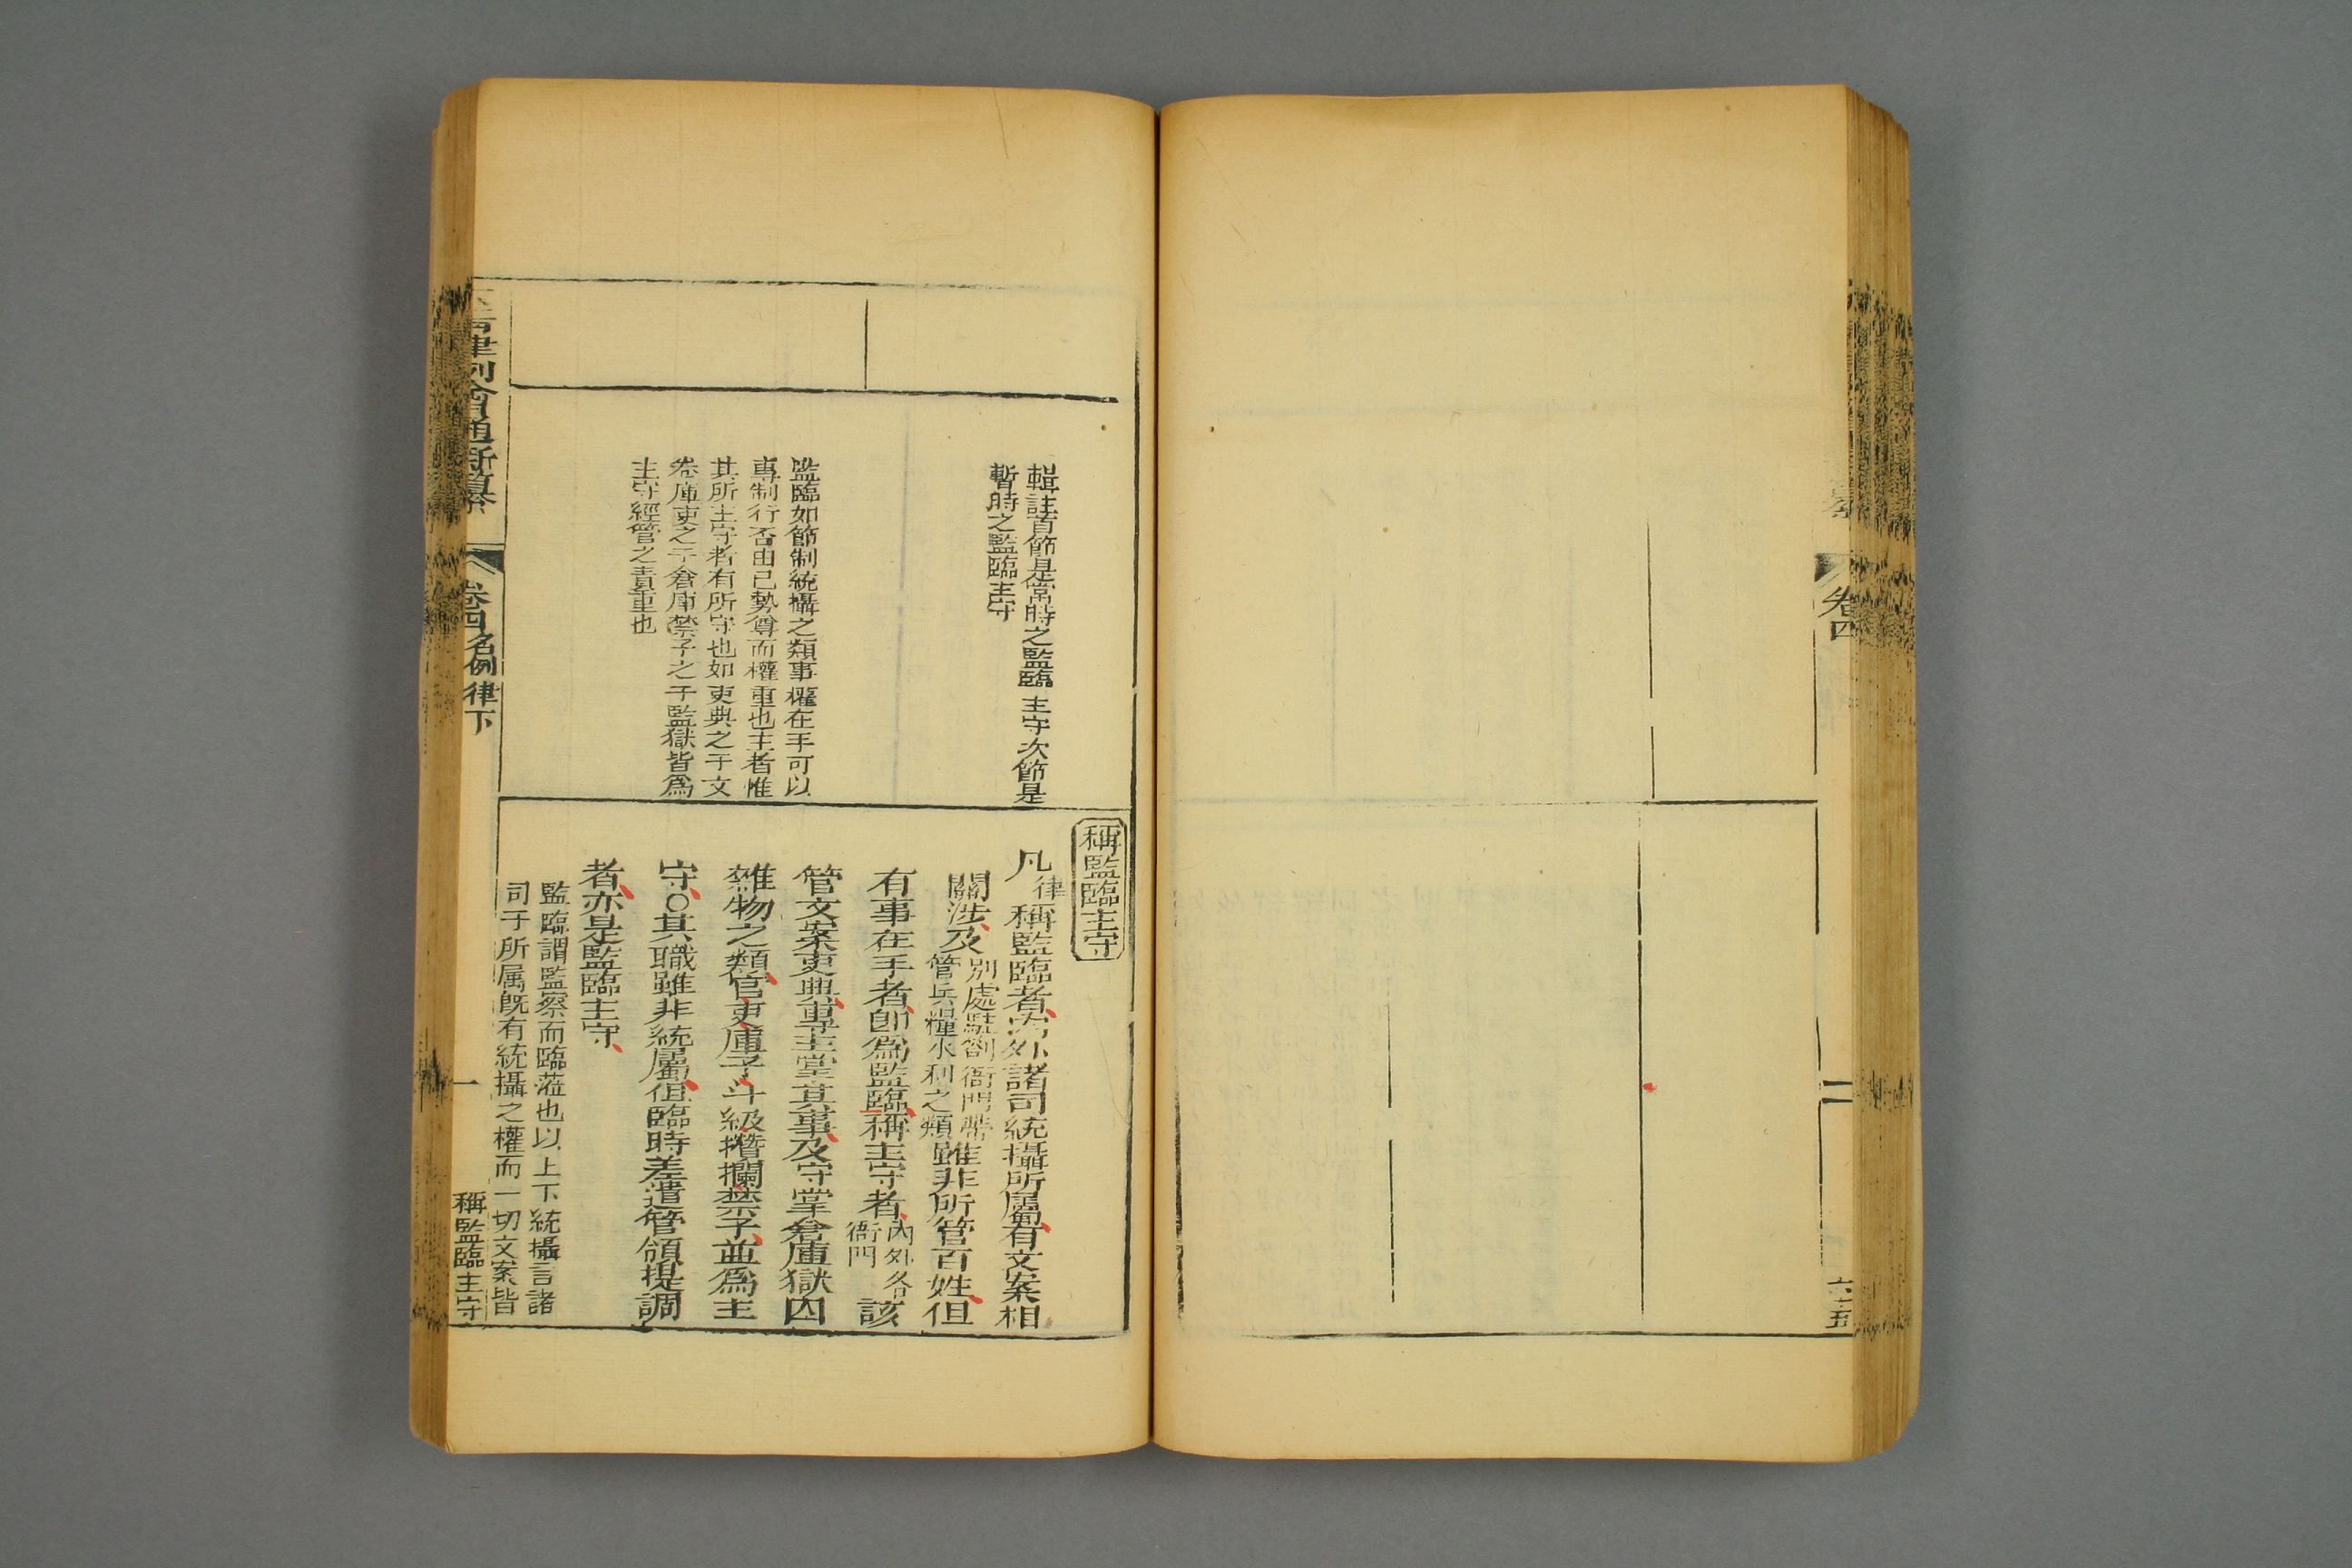 卷四
二
稱監臨主守
凡律稱監臨者內外諸司統攝所屬有文案相
關涉及別處駐劄衙門帶管兵糧水利之類雖非所管百姓但
有事在手者卽爲監臨稱主守者內外各衙門該
管文案吏典專主掌其事及守掌倉庫獄囚
雜物之類官吏庫子斗級攢攔禁子並爲主
守○其職雖非統屬但臨時差遣管領提調
者亦是監臨主守
監臨謂監察而臨蒞也以上下統攝言諸
司于所属旣有統攝之權而一切文案皆
輯註首節是常時之監臨主守次節是
暫時之監臨主守
監臨如節制統攝之類事權在手可以
專制行否由己勢尊而權重也主者惟
其所主守者有所守也如吏典之于文
卷庫吏之于倉庫禁子之于監獄皆爲
主守經管之責重也
律例會通新纂
卷四名例律下
一
稱監臨主守